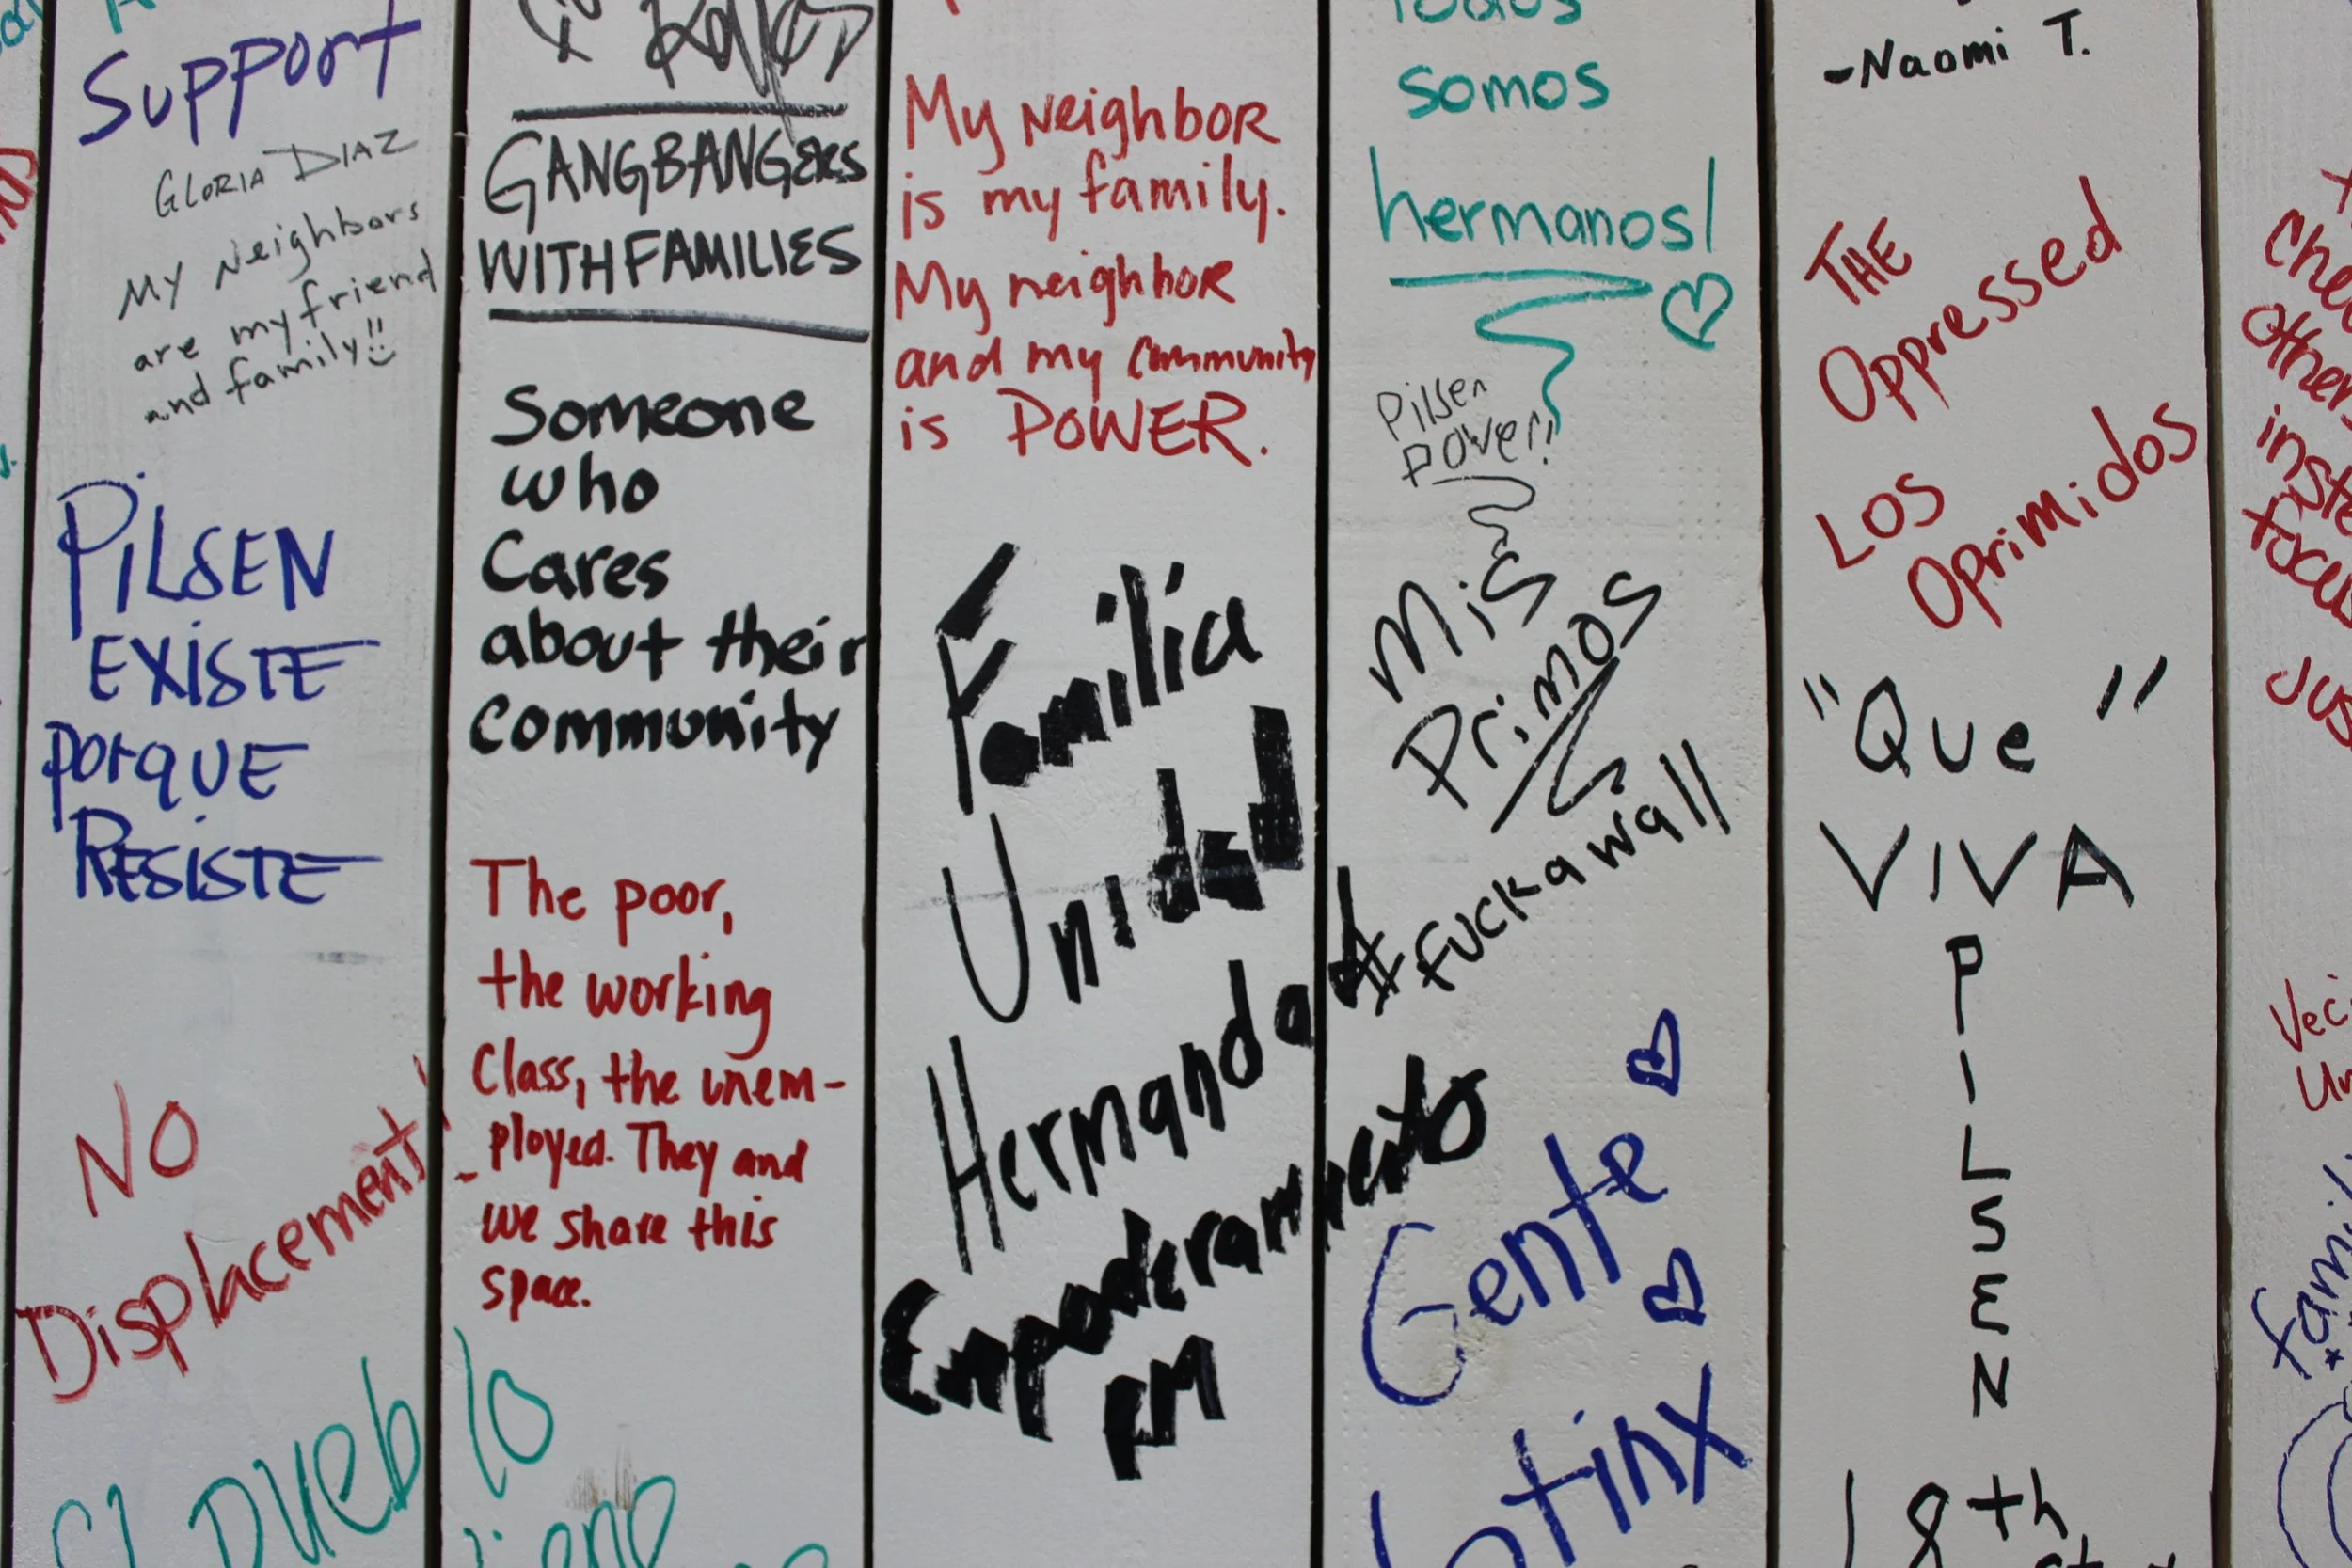 Support
GLORIA DIAZ
MY Neighbors
are my friend
and family!!
PILSEN
EXISTE
PORQUE
RESISTE
NO
Displacement!
El pueblo
GANGBANGERS
WITH FAMILIES
Someone
who
Cares
about their
Community
The poor,
the working
Class, the unem-
ployed. They and
we share this
space.
My NeighboR
is my family.
My neighboR
and my community
is POWER.
Familia
Unidad
Hermandad
Empoderamiento
FM
Todos
somos
hermanos!
Pilsen
power!
Mis
Primos
#fuck a wall
Gente
Latinx
-Naomi T.
THE
Oppressed
LOS
Oprimidos
"Que"
VIVA
P
I
L
S
E
N
18th